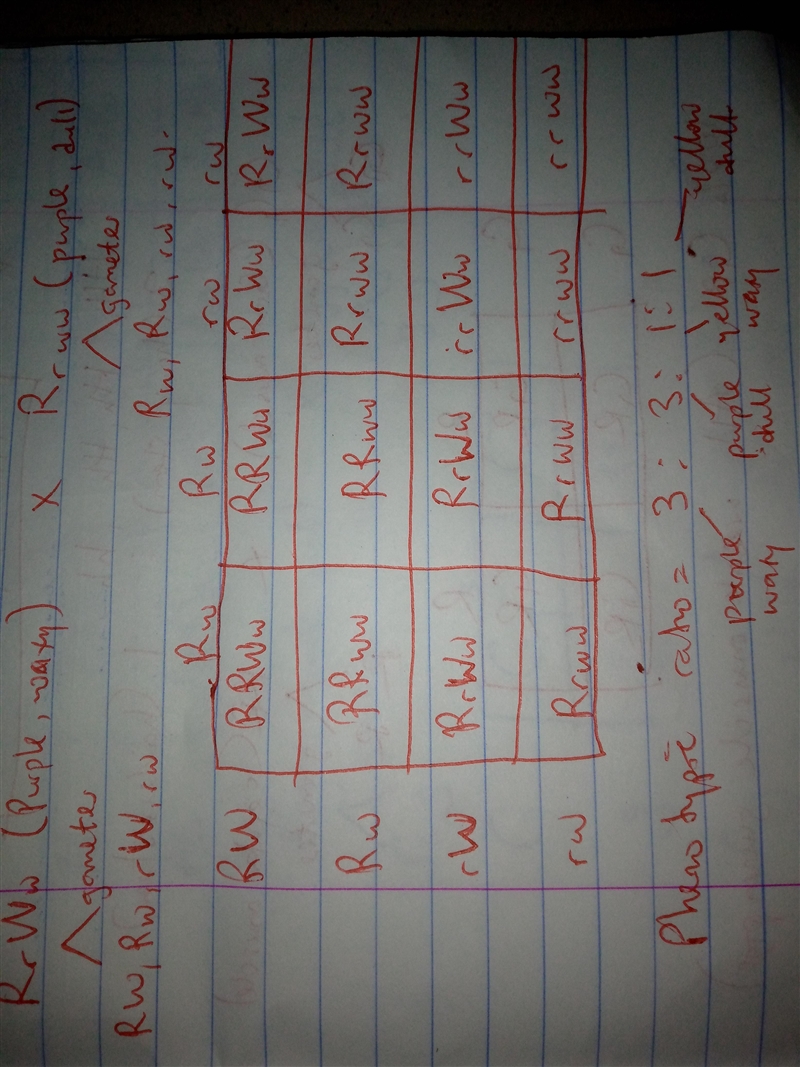 RrWw (Purple, waxy) X Rrww (purple, dull)
gametes gametes
RW, Rw, rW, rw Rw, Rw, rw, rw.
Rw Rw rw rw
RW RRWw RRWw RrWw RrWw
Rw RRww RRww Rrww Rrww
rW RrWw RrWw rrWw rrWw
rw Rrww Rrww rrww rrww
Pheno type ratio = 3: 3: 1: 1
purple purple yellow yellow
waxy dull waxy dull